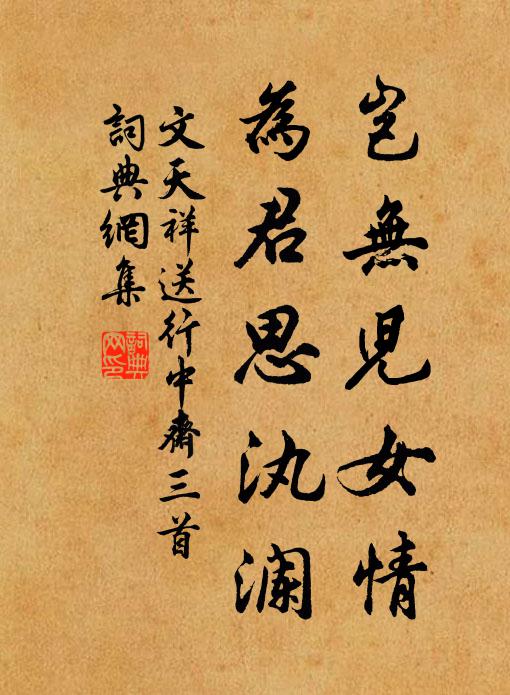 豈無児女情
為君思汍瀾
文天祥送行中齋三首
詞典網集
詞典
网印